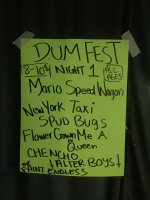 DUM FEST
8-10$ NIGHT 1 ALL AGES
Mario Speed Wagon
New York Taxi
SPUD BUGS
Flower Crown Me A
Queen
CHENCHO
ALTER BOYS
PAINT ENDLESS